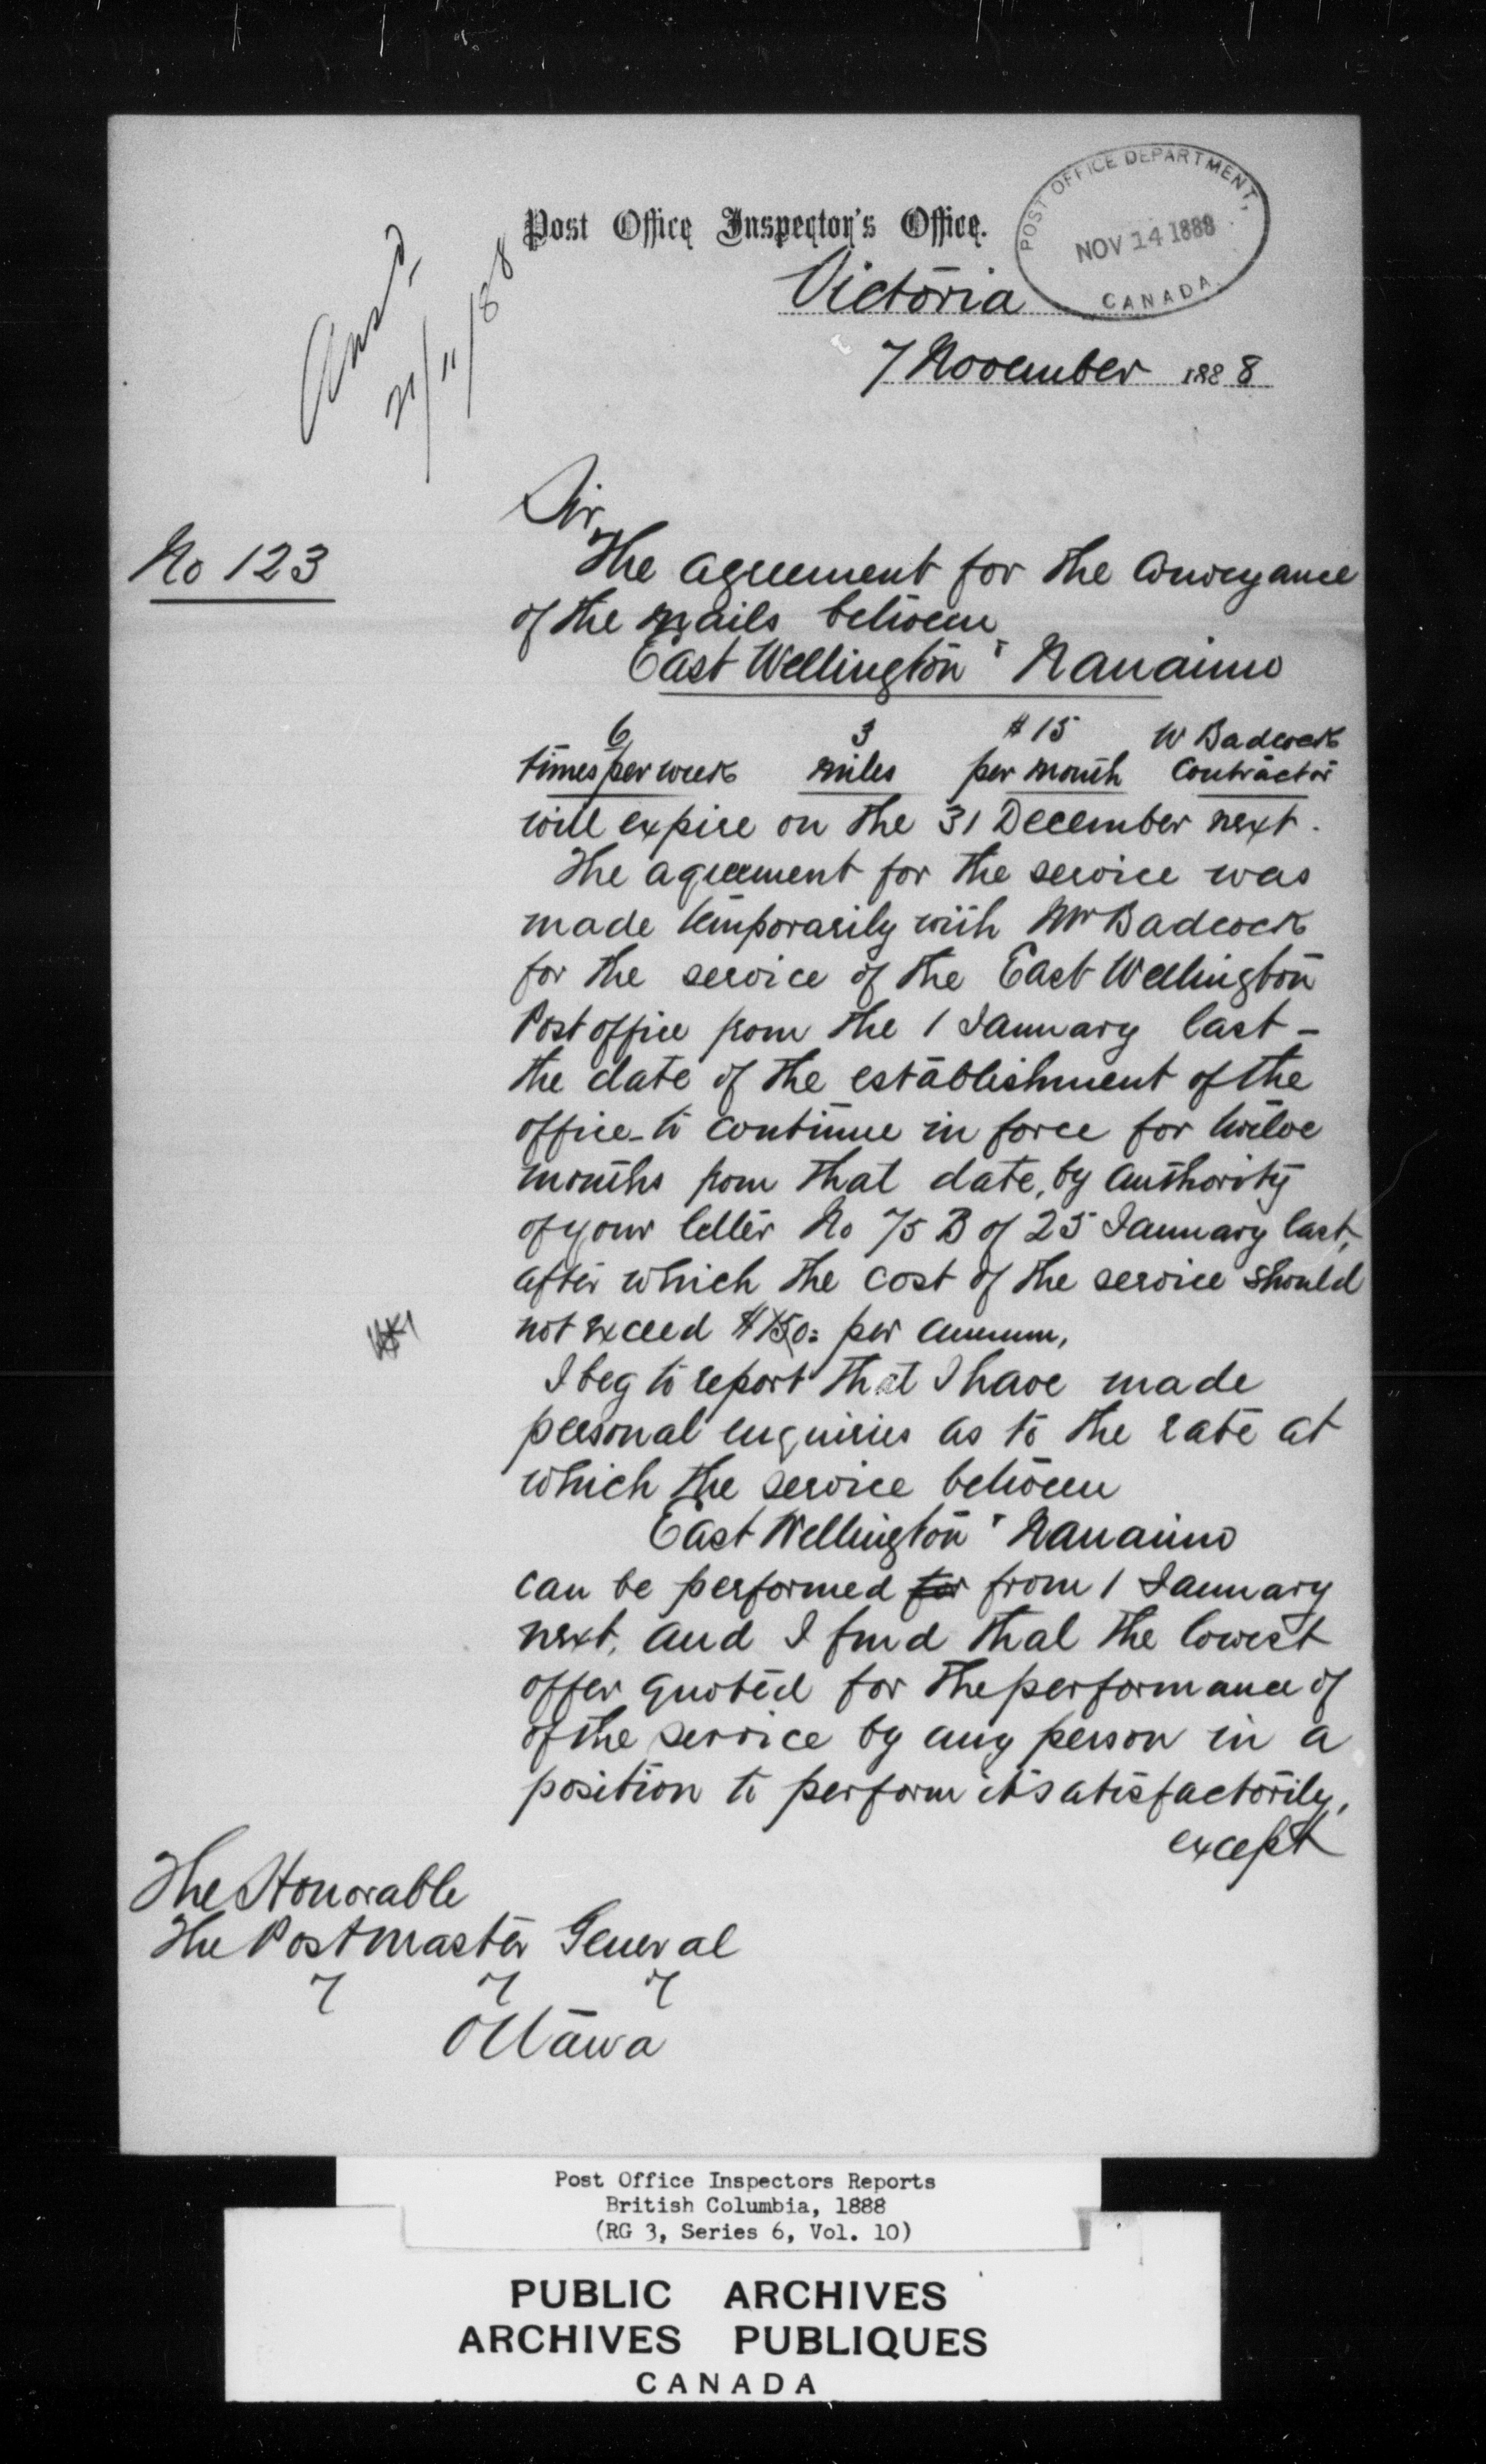 Post Office Inspector's Office.
POST OFFICE DEPARTMENT,
NOV 14 1888
CANADA.
Victoria
7 November 1888
Ansd
21/11/88
Sir,
No 123
The agreement for the conveyance
of the mails between
East Wellington & Nanaimo
6 3 $15 W Badcock
times per week miles per month Contractor
will expire on the 31 December next.
The agreement for the service was
made temporarily with Mr Badcock
for the service of the East Wellington
Post office from the 1 January last –
the date of the establishment of the
office – to continue in force for twelve
months from that date, by authority
of your letter No 75 B of 25 January last,
after which the cost of the service should
not exceed $150: per annum,
I beg to report that I have made
personal enquiries as to the rate at
which the service between
East Wellington & Nanaimo
can be performed for from 1 January
next, and I find that the lowest
offer quoted for the performance of
of the service by any person in a
position to perform it satisfactorily,
except
The Honorable
The Postmaster General
Ottawa
Post Office Inspectors Reports
British Columbia, 1888
(RG 3, Series 6, Vol. 10)
PUBLIC ARCHIVES
ARCHIVES PUBLIQUES
CANADA